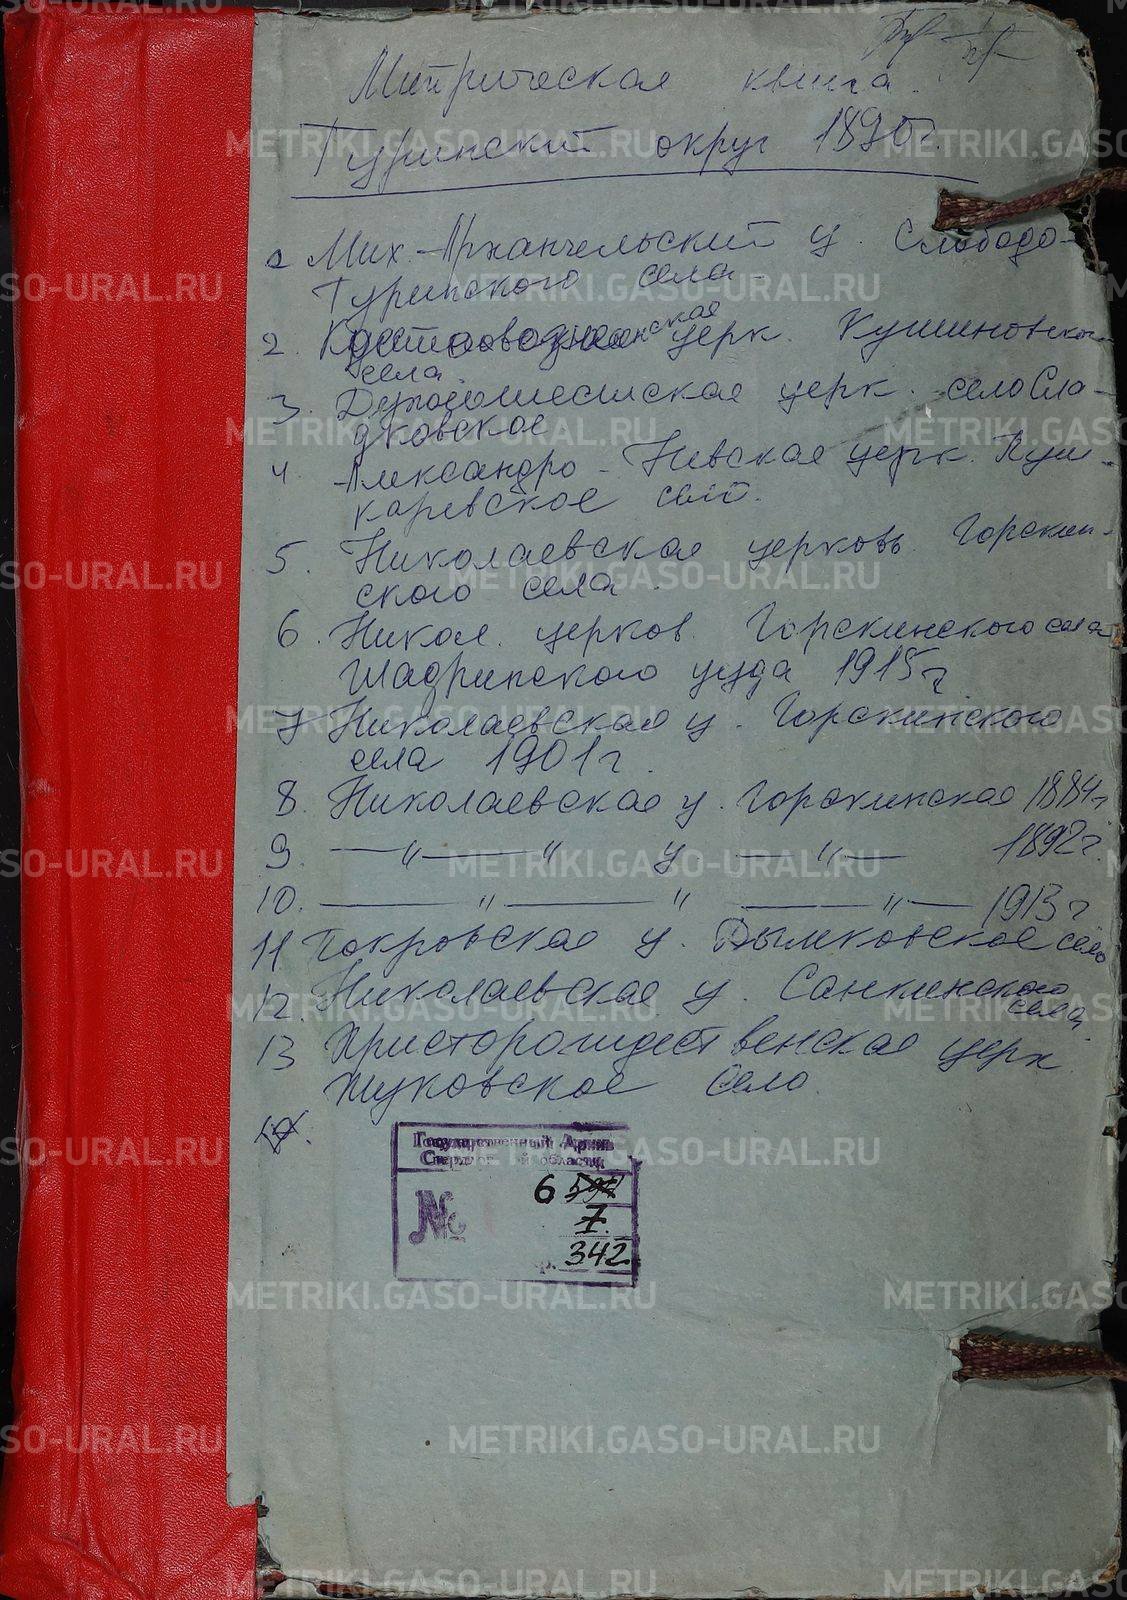 Метрическая книга.
Туринский округ 1890г.
1 Мих.-Архангельский ц. Слободо-
Туринского села-
2. церк. Кушиновского
села
3. Духосошественская церк. село Сла-
дковское
4. Александро-Невская церк. Куш-
каревское село.
5. Николаевская церковь. Горскин-
ского села.
6. Никол. церков. Горскинского села
Шадринского уезда 1915г
7 Николаевская ц. Горскинского
села 1901г.
8. Николаевская ц. Горскинская 1884г.
9. —"——" ц —"— 1892г.
10. ——"——" ——"— 1913г
11 Покровская ц. Дымковское село
12. Николаевская ц. Санкинского
села
13 Христорождественская церк
Жуковское село.
14.
Государственный Архив
Свердловской области
№ 6 
7.
342
METRIKI.GASO-URAL.RU